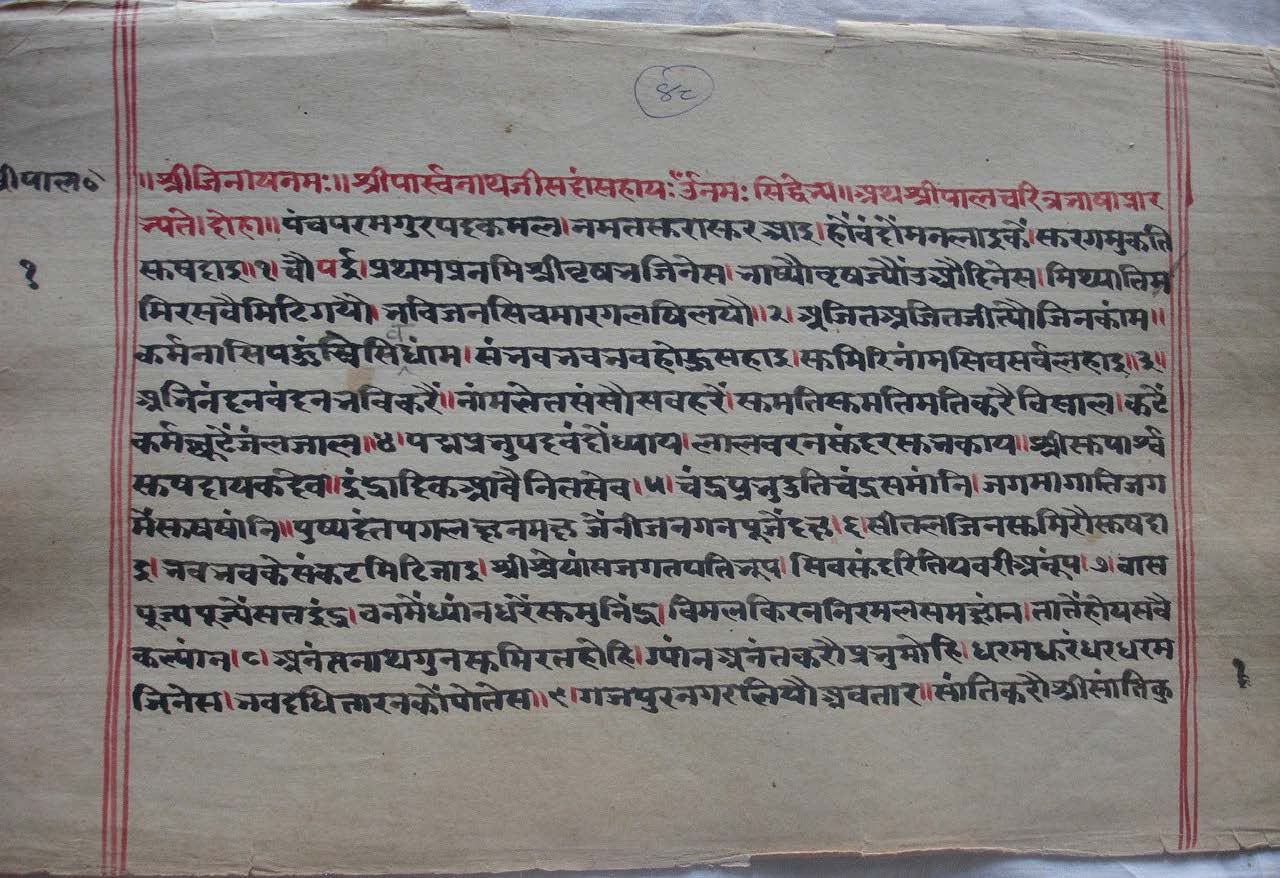 ४८
श्रीपाल०
॥श्रीजिनायनमः॥श्रीपार्स्वनाथजीसदांसहायः॥ॐनमःसिद्धेभ्य॥अथश्रीपालचरित्रभाषाप्रार
भ्यते।दोहा॥पंचपरमगुरपदकमल।नमतसुरासुरआइ।हौंवंदौंमनलाइकैं।सुरगमुकति
१
सुषदाइ॥१।चौपई।प्रथमप्रनमिश्रीवृषभजिनेस।भाष्यौवृषज्यौंउग्यौदिनेस।मिथ्यातिम
मिरसवैमिटिगयौ।भविजनसिवमारगलषिलयौ॥२।अजितअजितजीत्यौजिनकांम॥
कर्मनासिपहुंचेसिवधांम।संभवभवभवहोहुसहाइ।सुमिरिनांमसिवसर्वलहाइ॥३॥
अभिनंदनवंदनभविकरैं॥नांमलेतसंसौसवहरैं।सुमतिसुमतिमतिकरैविसाल।कटैं
कर्मछूटैंजंलजाल॥४।पद्मप्रभुपदवंदौंध्याय।लालवरनसुंदरसुभकाय॥श्रीसुपार्श्व
सुषदायकदेव॥इंद्रादिकआवैंनितसेव।५।चंद्रप्रभुदुतिचंद्रसमांनि।जगमागातिजग
मैंसुषषांनि॥पुष्पदंतपगलछनमछजैंनीजनगनपूजैंदछ।६।सीतलजिनसुमिरौसुषदा
इ।भवभवकेसंकटमिटिजाइ।श्रीश्रेयांसजगतपतिभूप।सिवसुंदरितियवरीअनूंप।७।वास
पूज्यपूज्यैंसतइंद्र।वनमैंध्यांनधरैंसुमुनिंद्र।विमलकिरननिरमलसमझांन।तातैंहोयसवै
कल्यांन।८।अनंतनाथगुनसुमिरतहोहि।ग्यांनअनंतकरौप्रभुमोहि।धरमधुरंधरधरम
१
जिनेस।भवदधितारनकौंपोतेस॥९।गजपुरनगरलियौअवतार॥सांतिकरौश्रीसांतिकु